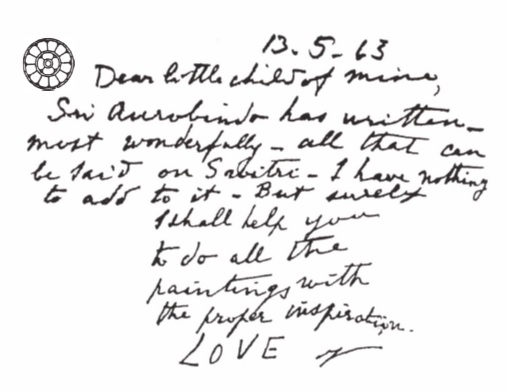 13.5-63
Dear little child of mine,
Sri Aurobindo has written -
most wonderfully - all that can
be said on Savitri - I have nothing
to add to it - But surely
I shall help you
to do all the
paintings with
the proper inspiration.
LOVE